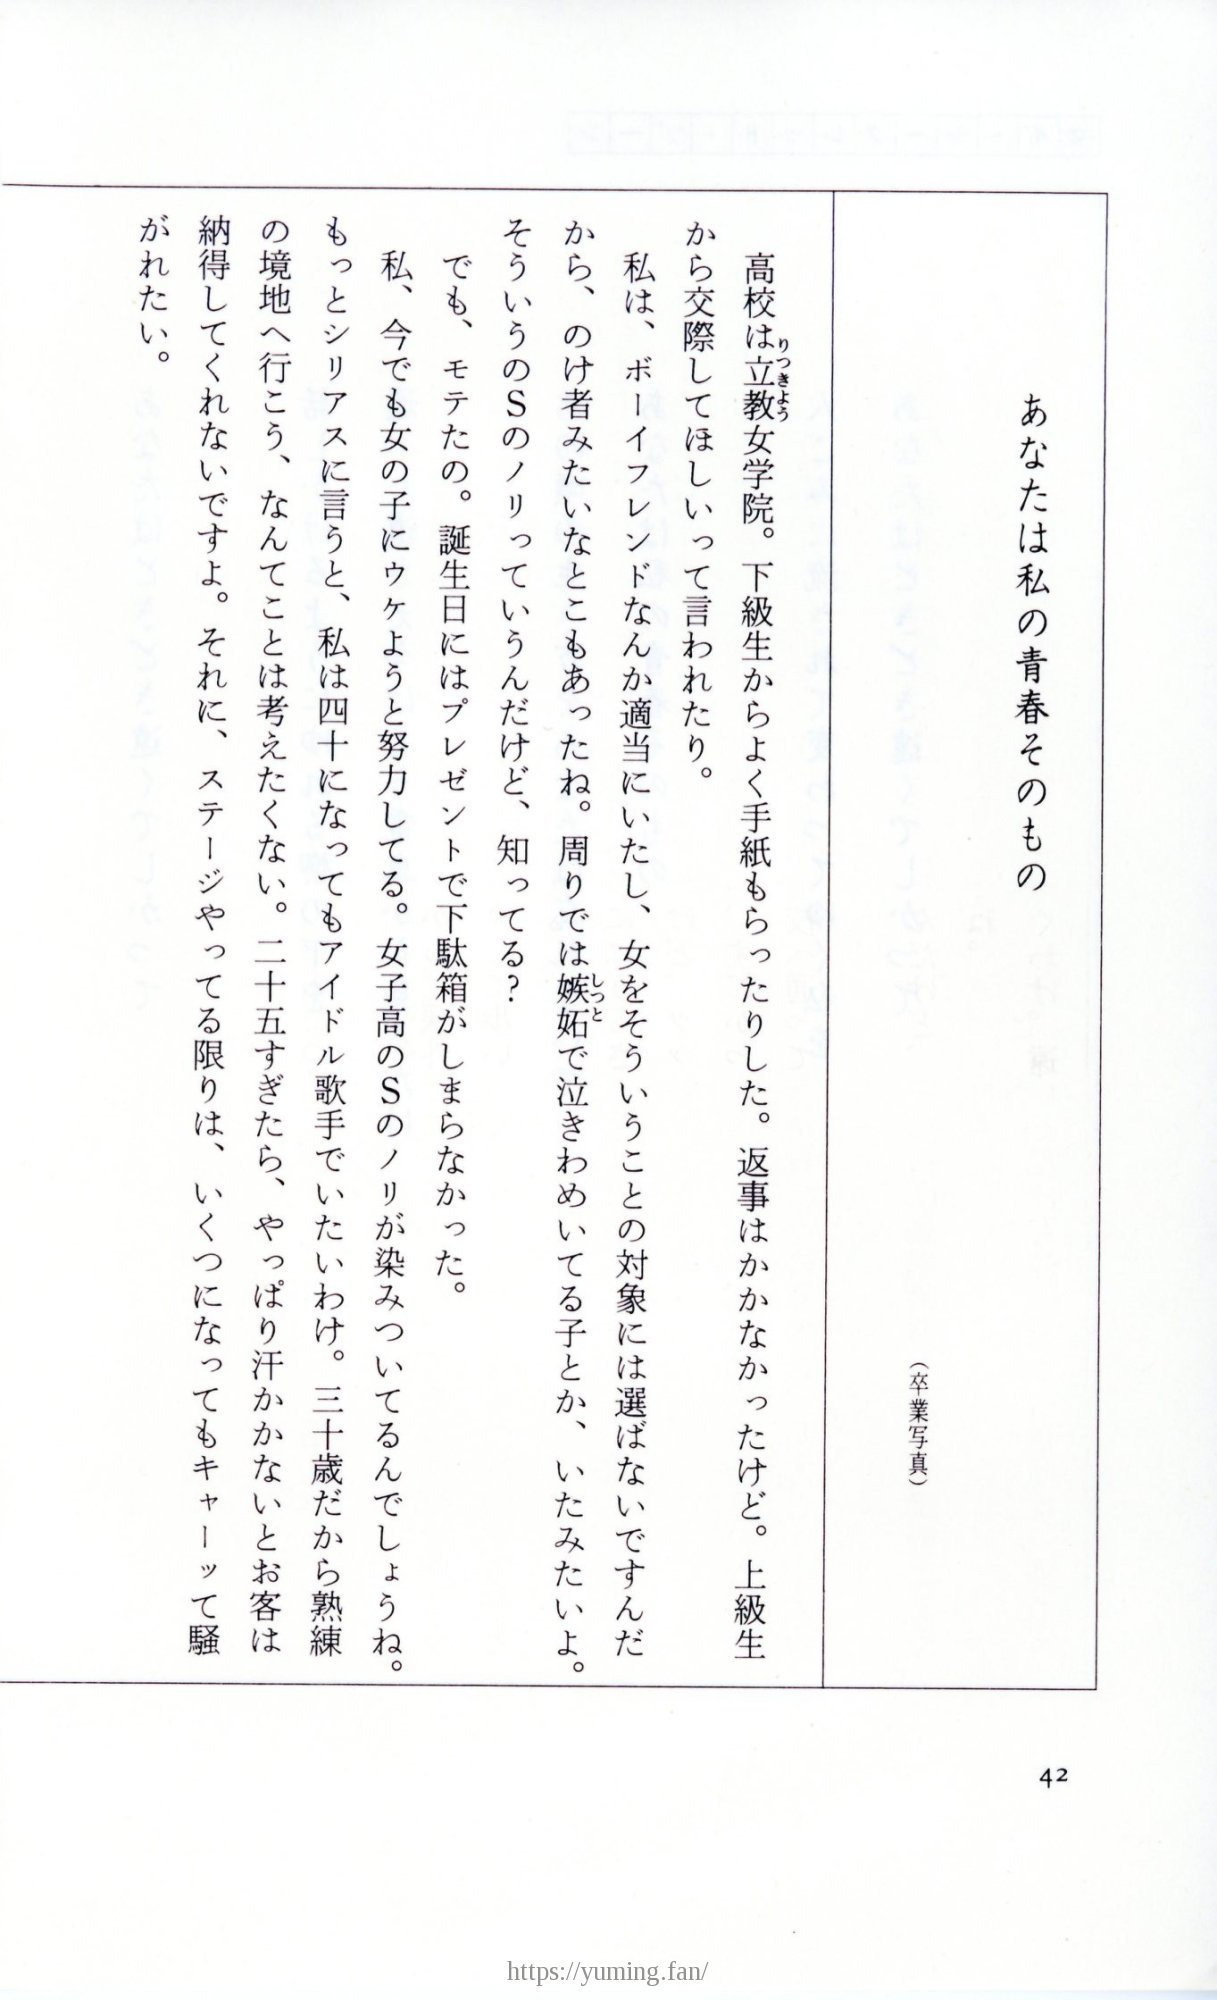 あなたは私の青春そのもの
(卒業写真)
高校は立教女学院。下級生からよく手紙もらったりした。返事はかかなかったけど。上級生
りつきよう
から交際してほしいって言われたり。
私は、ボーイフレンドなんか適当にいたし、女をそういうことの対象には選ばないですんだ
から、のけ者みたいなとこもあったね。周りでは嫉妬で泣きわめいてる子とか、いたみたいよ。
しつと
そういうのSのノリっていうんだけど、知ってる?
でも、モテたの。誕生日にはプレゼントで下駄箱がしまらなかった。
私、今でも女の子にウケようと努力してる。女子高のSのノリが染みついてるんでしょうね。
もっとシリアスに言うと、私は四十になってもアイドル歌手でいたいわけ。三十歳だから熟練
の境地へ行こう、なんてことは考えたくない。二十五すぎたら、やっぱり汗かかないとお客は
納得してくれないですよ。それに、ステージやってる限りは、いくつになってもキャーッて騒
がれたい。
42
https://yuming.fan/